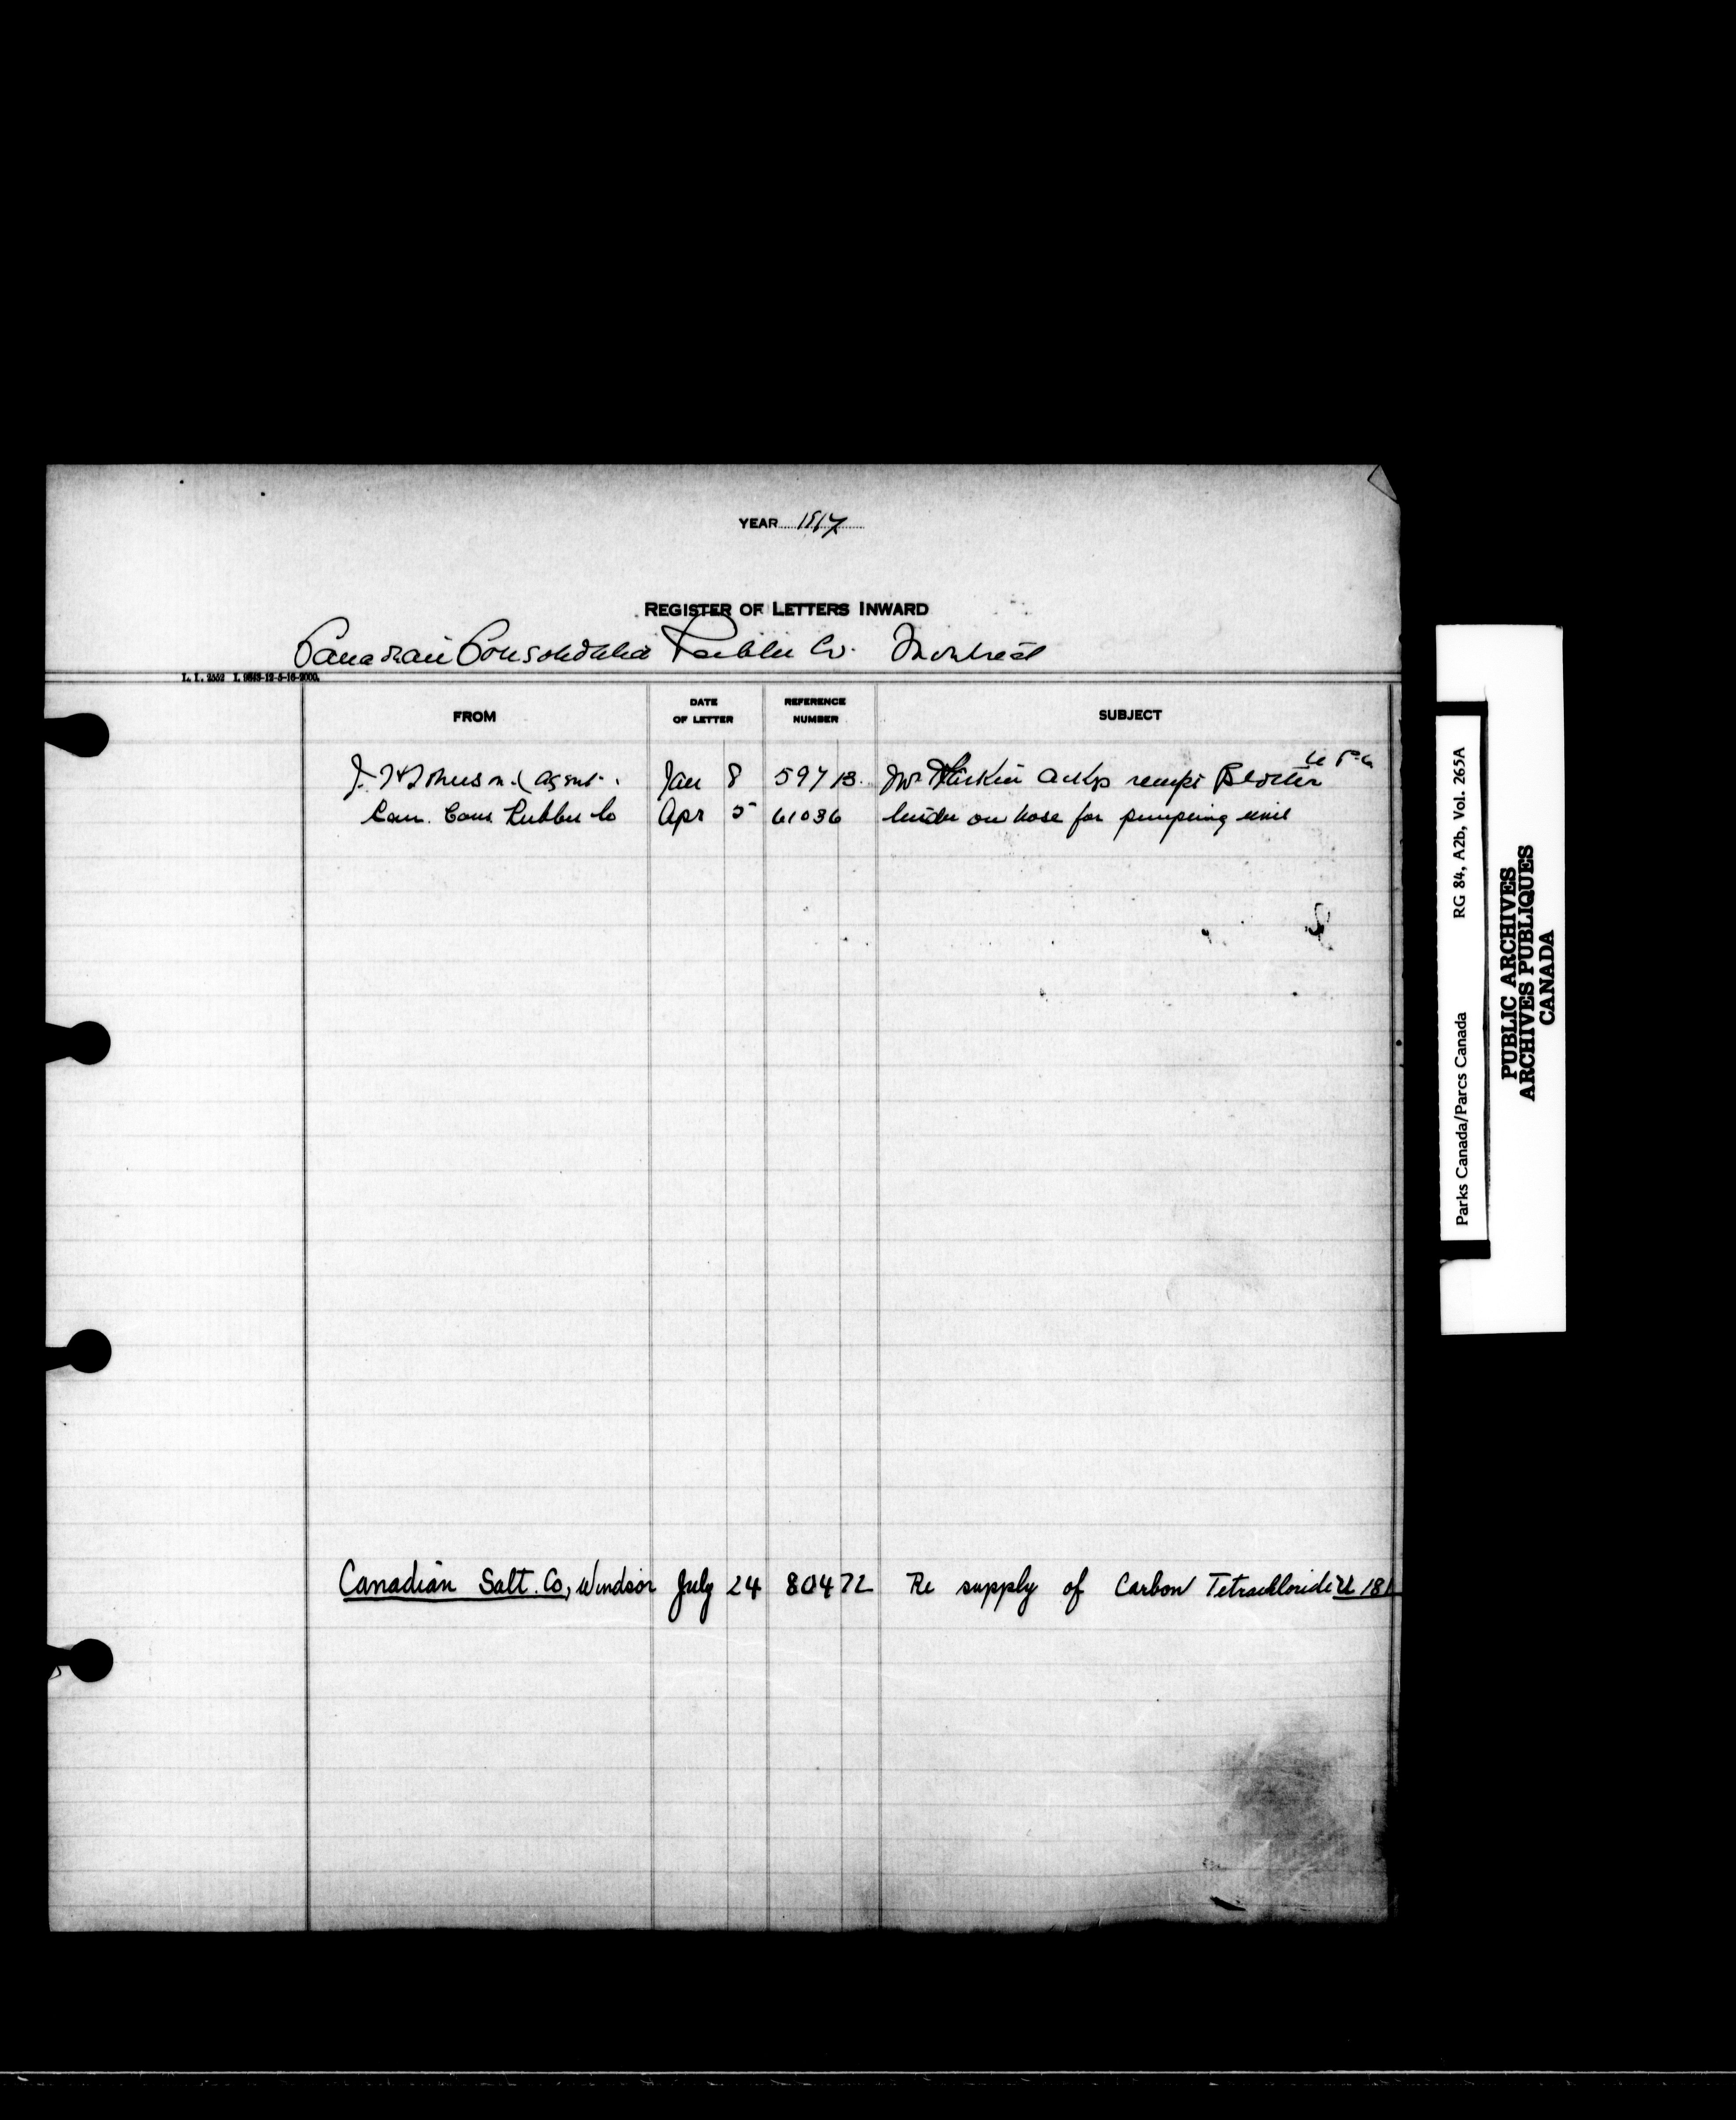 YEAR 1917
REGISTER OF LETTERS INWARD
Canadian Consolidated Rubber Co. Montreal
L. I. 2552 I. 9843-12-5-16-2000.
FROM DATE OF LETTER REFERENCE NUMBER SUBJECT
J. (agent. Jan 8 59713. Mr Harkin ackgs Blotter
Can. Cons Rubber Co Apr 5 61036 on hose for pumping unit
Canadian Salt. Co, Windsor July 24 80472 Re supply of Carbon Tetrachloride U 181
Parks Canada/Parcs Canada RG 84, A2b, Vol. 265A
PUBLIC ARCHIVES
ARCHIVES PUBLIQUES
CANADA